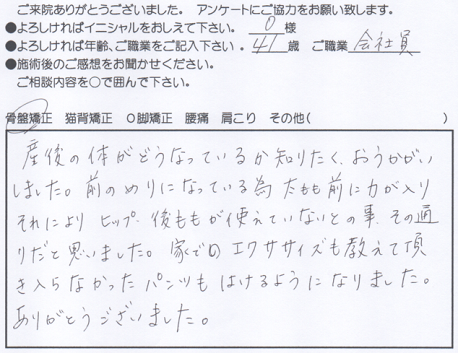 ご来院ありがとうございました。 アンケートにご協力をお願い致します。
●よろしければイニシャルをおしえて下さい。 O 様
●よろしければ年齢、ご職業をご記入下さい。 41 歳 ご職業 会社員
●施術後のご感想をお聞かせください。
ご相談内容を○で囲んで下さい。
骨盤矯正 猫背矯正 O脚矯正 腰痛 肩こり その他( )
産後の体がどうなっているか知りたく、おうかがい
しました。前のめりになっている為 太もも前に力が入り
それにより ヒップ、後ももが使えていないとの事、その通
りだと思いました。家でのエクササイズも教えて頂
き入らなかったパンツもはけるようになりました。
ありがとうございました。